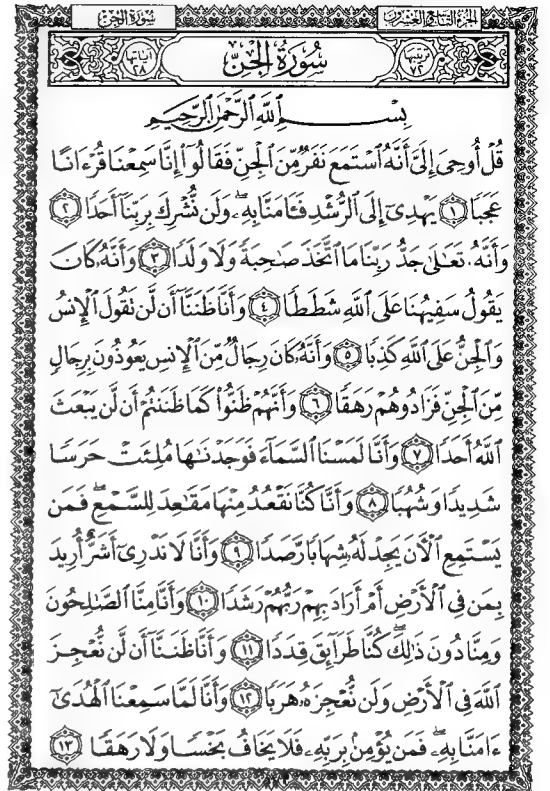 الجزء التاسع والعشرون
سورة الجن
ترتيبها ٧٢
سُورَةُ الْجِنِّ
آياتها ٢٨
بِسْمِ ٱللَّهِ ٱلرَّحْمَٰنِ ٱلرَّحِيمِ
قُلْ أُوحِىَ إِلَىَّ أَنَّهُ ٱسْتَمَعَ نَفَرٌ مِّنَ ٱلْجِنِّ فَقَالُوٓا۟ إِنَّا سَمِعْنَا قُرْءَانًا
عَجَبًا ١ يَهْدِىٓ إِلَى ٱلرُّشْدِ فَـَٔامَنَّا بِهِۦ ۖ وَلَن نُّشْرِكَ بِرَبِّنَآ أَحَدًا ٢
وَأَنَّهُۥ تَعَٰلَىٰ جَدُّ رَبِّنَا مَا ٱتَّخَذَ صَٰحِبَةً وَلَا وَلَدًا ٣ وَأَنَّهُۥ كَانَ
يَقُولُ سَفِيهُنَا عَلَى ٱللَّهِ شَطَطًا ٤ وَأَنَّا ظَنَنَّآ أَن لَّن تَقُولَ ٱلْإِنسُ
وَٱلْجِنُّ عَلَى ٱللَّهِ كَذِبًا ٥ وَأَنَّهُۥ كَانَ رِجَالٌ مِّنَ ٱلْإِنسِ يَعُوذُونَ بِرِجَالٍ
مِّنَ ٱلْجِنِّ فَزَادُوهُمْ رَهَقًا ٦ وَأَنَّهُمْ ظَنُّوا۟ كَمَا ظَنَنتُمْ أَن لَّن يَبْعَثَ
ٱللَّهُ أَحَدًا ٧ وَأَنَّا لَمَسْنَا ٱلسَّمَآءَ فَوَجَدْنَٰهَا مُلِئَتْ حَرَسًا
شَدِيدًا وَشُهُبًا ٨ وَأَنَّا كُنَّا نَقْعُدُ مِنْهَا مَقَٰعِدَ لِلسَّمْعِ ۖ فَمَن
يَسْتَمِعِ ٱلْـَٔانَ يَجِدْ لَهُۥ شِهَابًا رَّصَدًا ٩ وَأَنَّا لَا نَدْرِىٓ أَشَرٌّ أُرِيدَ
بِمَن فِى ٱلْأَرْضِ أَمْ أَرَادَ بِهِمْ رَبُّهُمْ رَشَدًا ١٠ وَأَنَّا مِنَّا ٱلصَّٰلِحُونَ
وَمِنَّا دُونَ ذَٰلِكَ ۖ كُنَّا طَرَآئِقَ قِدَدًا ١١ وَأَنَّا ظَنَنَّآ أَن لَّن نُّعْجِزَ
ٱللَّهَ فِى ٱلْأَرْضِ وَلَن نُّعْجِزَهُۥ هَرَبًا ١٢ وَأَنَّا لَمَّا سَمِعْنَا ٱلْهُدَىٰٓ
ءَامَنَّا بِهِۦ ۖ فَمَن يُؤْمِنۢ بِرَبِّهِۦ فَلَا يَخَافُ بَخْسًا وَلَا رَهَقًا ١٣